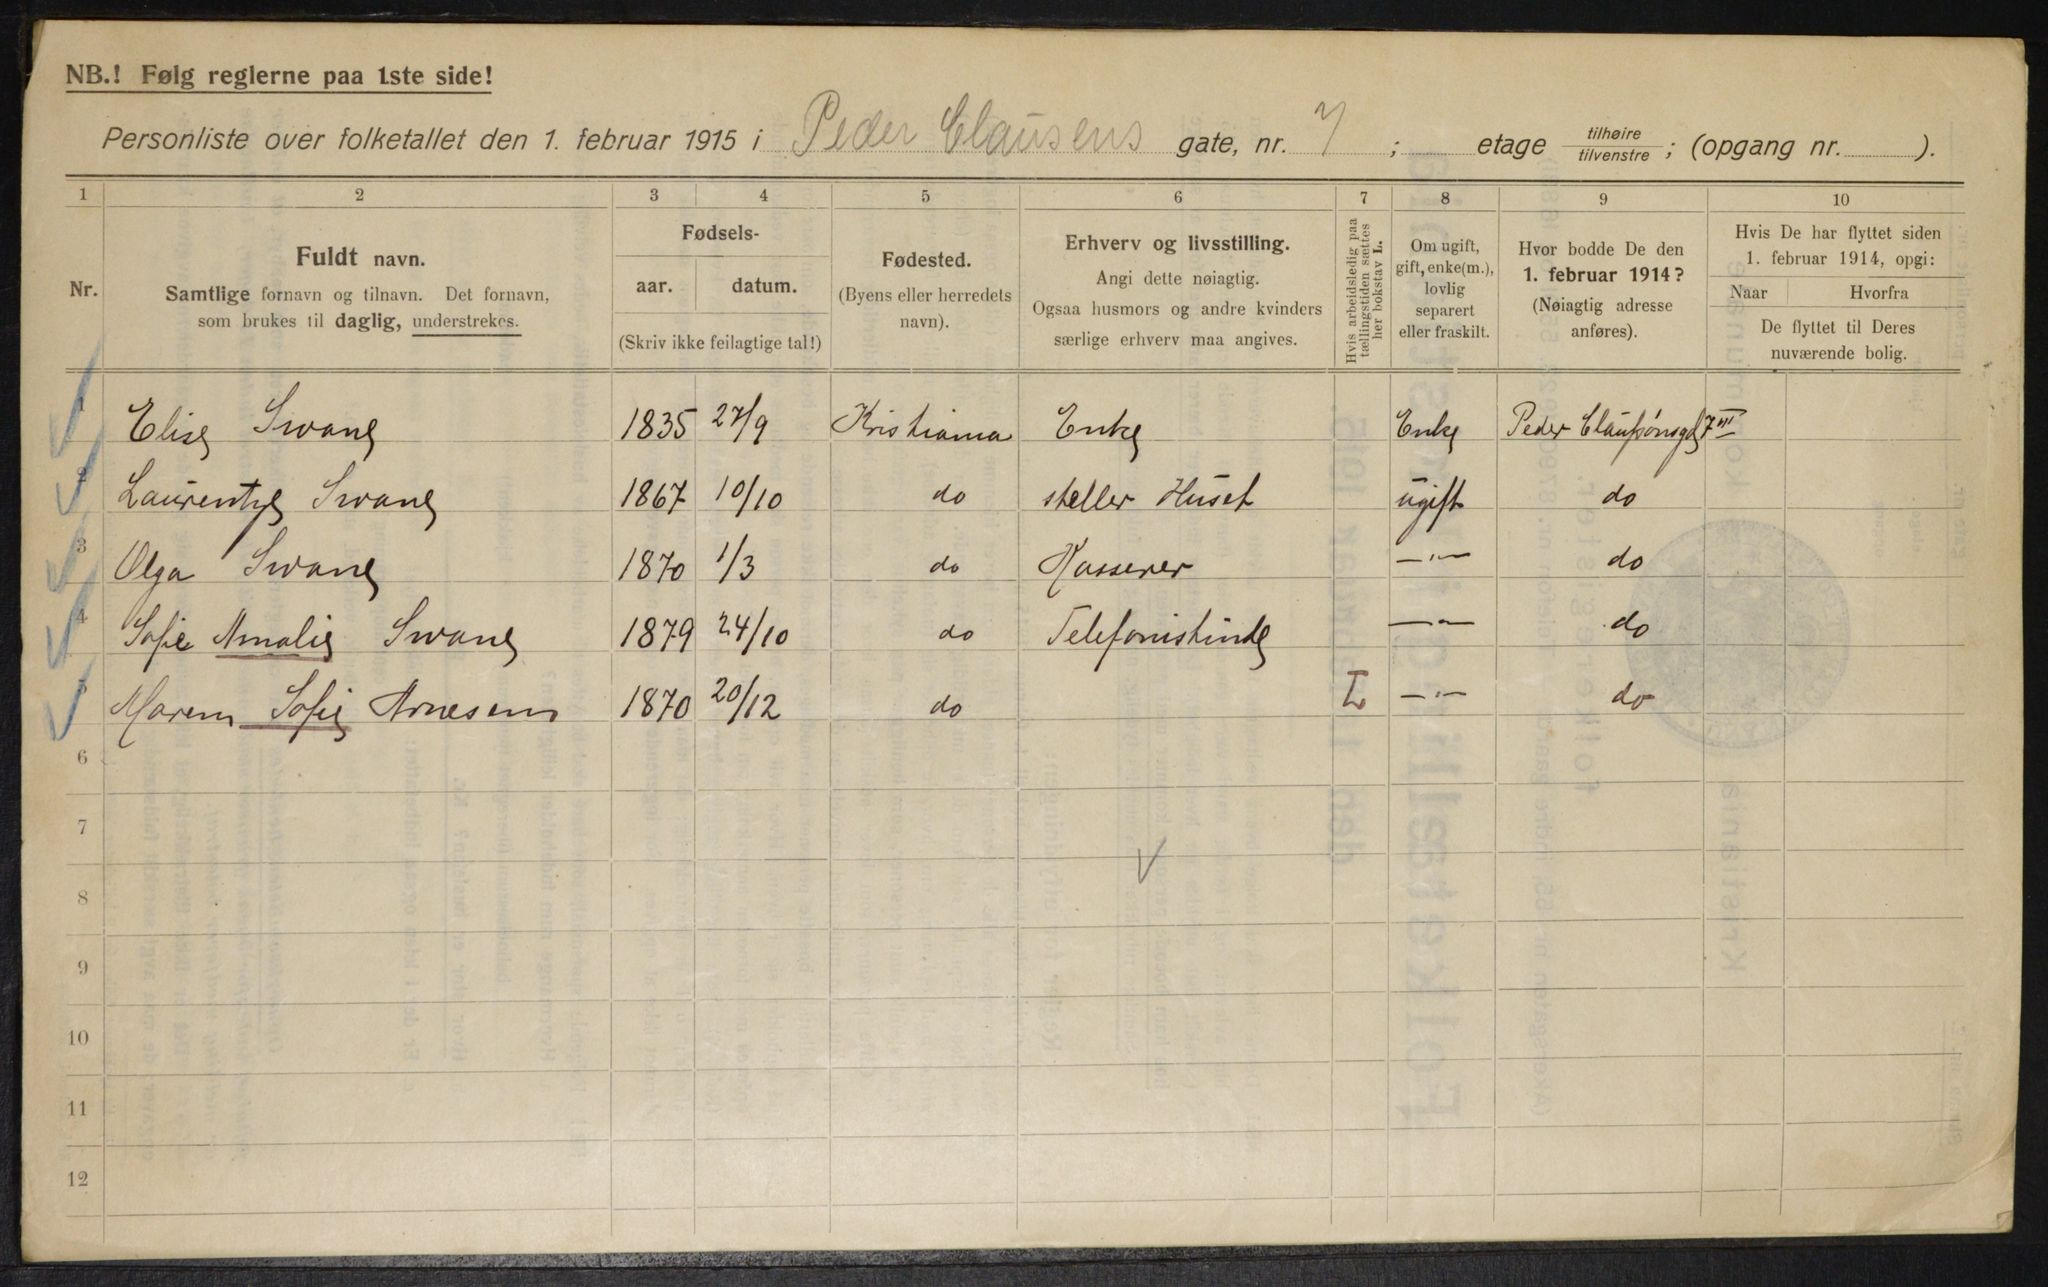 NB.! Følg reglerne paa 1ste side!
Personliste over folketallet den 1. februar 1915 i Peder Clausens gate, nr. 7 ; etage tilhøire tilvenstre ; (opgang nr. ).
1 2 3 4 5 6 7 8 9 10
Nr.
Fuldt navn.
Samtlige fornavn og tilnavn. Det fornavn,
som brukes til daglig, understrekes.
Fødsels-
aar. datum.
(Skriv ikke feilagtige tal!)
Fødested.
(Byens eller herredets
navn).
Erhverv og livsstilling.
Angi dette nøiagtig.
Ogsaa husmors og andre kvinders
særlige erhverv maa angives.
Hvis arbeidsledig paa
tællingstiden sættes
her bokstav L.
Om ugift,
gift, enke(m.),
lovlig
separert
eller fraskilt.
Hvor bodde De den
1. februar 1914?
(Nøiagtig adresse
anføres).
Hvis De har flyttet siden
1. februar 1914, opgi:
Naar Hvorfra
De flyttet til Deres
nuværende bolig.
1 Elise Swane 1835 27/9 Kristiania Enke Enke Peder Claussønsgd 7 III
2 Laurentze Swane 1867 10/10 do steller Huset ugift do
3 Olga Swane 1870 1/3 do Kasserer —"— do
4 Sofie Amalie Swane 1879 24/10 do Telefonistinde —"— do
5 Maren Sofie Arnesen 1870 20/12 do L —"— do
6
7
8
9
10
11
12